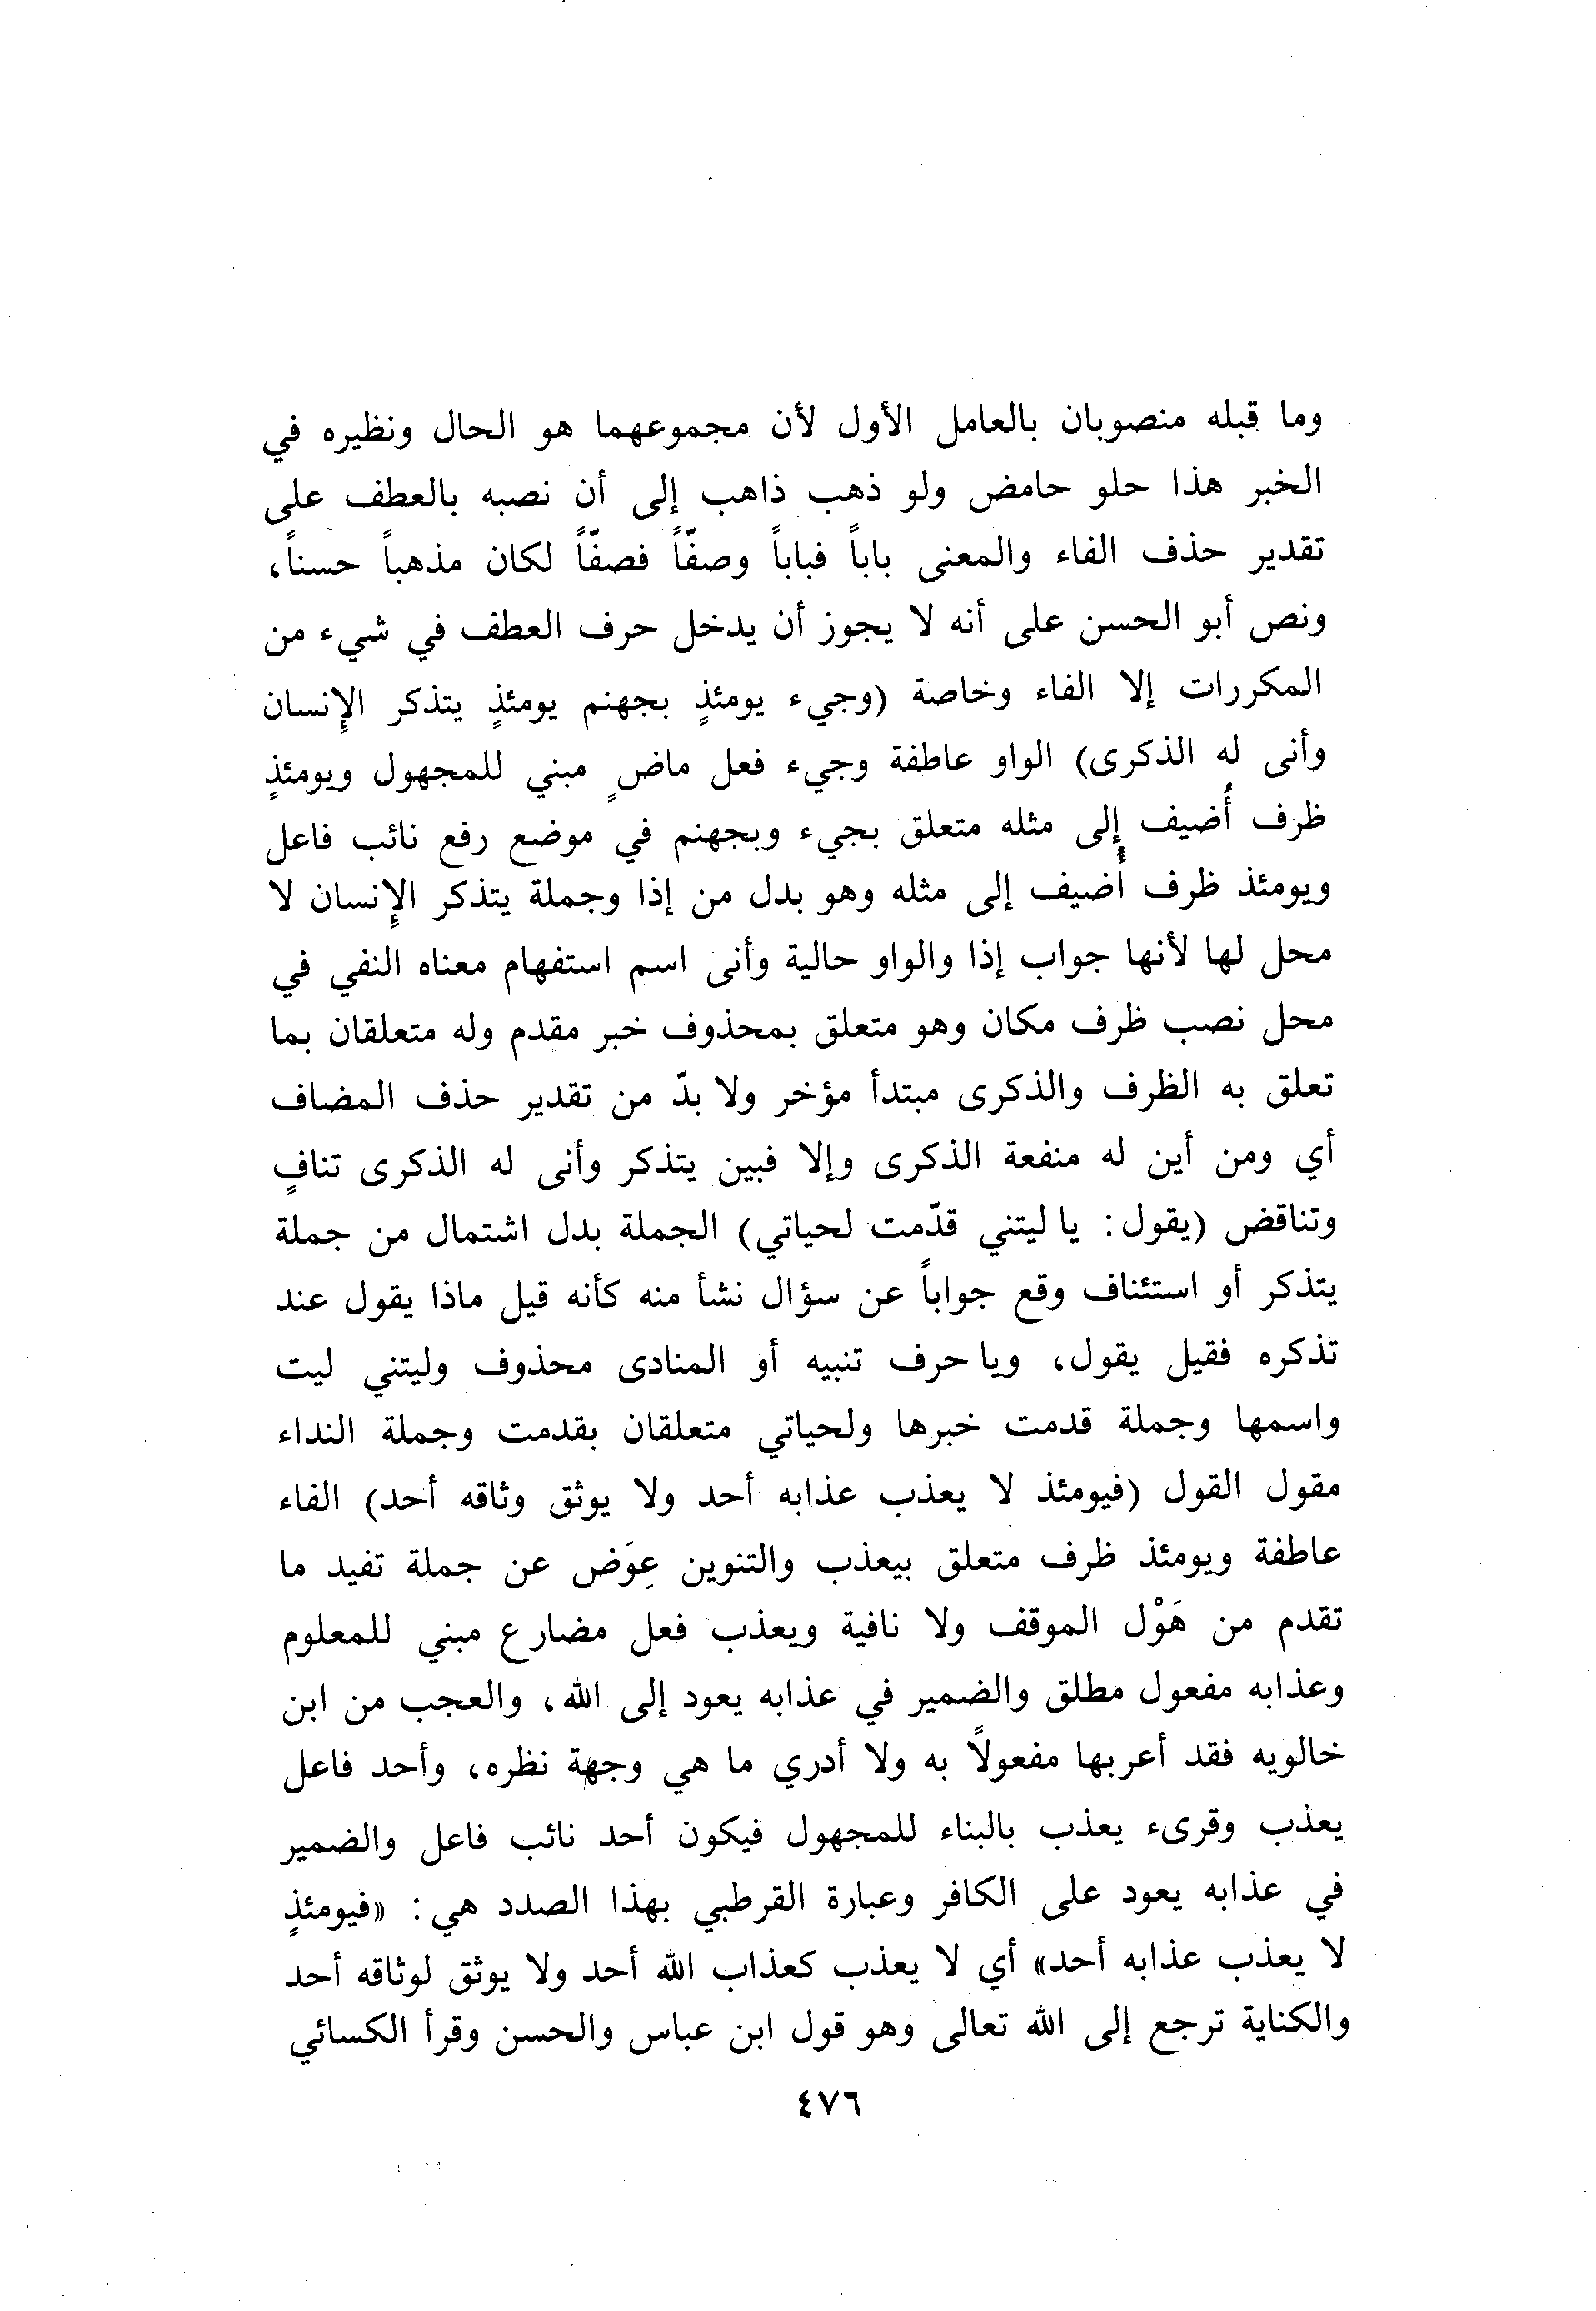 وما قبله منصوبان بالعامل الأول لأن مجموعهما هو الحال ونظيره في
الخبر هذا حلو حامض ولو ذهب ذاهب إلى أن نصبه بالعطف على
تقدير حذف الفاء والمعنى باباً فباباً وصفّاً فصفّاً لكان مذهباً حسناً،
ونص أبو الحسن على أنه لا يجوز أن يدخل حرف العطف في شيء من
المكررات إلا الفاء وخاصة (وجيء يومئذٍ بجهنم يومئذٍ يتذكر الإنسان
وأنى له الذكرى) الواو عاطفة وجيء فعل ماضٍ مبني للمجهول ويومئذٍ
ظرف أُضيف إلى مثله متعلق بجيء وبجهنم في موضع رفع نائب فاعل
ويومئذ ظرف أُضيف إلى مثله وهو بدل من إذا وجملة يتذكر الإنسان لا
محل لها لأنها جواب إذا والواو حالية وأنى اسم استفهام معناه النفي في
محل نصب ظرف مكان وهو متعلق بمحذوف خبر مقدم وله متعلقان بما
تعلق به الظرف والذكرى مبتدأ مؤخر ولا بدّ من تقدير حذف المضاف
أي ومن أين له منفعة الذكرى وإلا فبين يتذكر وأنى له الذكرى تنافٍ
وتناقض (يقول: يا ليتني قدّمت لحياتي) الجملة بدل اشتمال من جملة
يتذكر أو استئناف وقع جواباً عن سؤال نشأ منه كأنه قيل ماذا يقول عند
تذكره فقيل يقول، ويا حرف تنبيه أو المنادى محذوف وليتني ليت
واسمها وجملة قدمت خبرها ولحياتي متعلقان بقدمت وجملة النداء
مقول القول (فيومئذ لا يعذب عذابه أحد ولا يوثق وثاقه أحد) الفاء
عاطفة ويومئذ ظرف متعلق بيعذب والتنوين عِوَض عن جملة تفيد ما
تقدم من هَوْل الموقف ولا نافية ويعذب فعل مضارع مبني للمعلوم
وعذابه مفعول مطلق والضمير في عذابه يعود إلى الله، والعجب من ابن
خالويه فقد أعربها مفعولاً به ولا أدري ما هي وجهة نظره، وأحد فاعل
يعذب وقرىء يعذب بالبناء للمجهول فيكون أحد نائب فاعل والضمير
في عذابه يعود على الكافر وعبارة القرطبي بهذا الصدد هي: «فيومئذٍ
لا يعذب عذابه أحد» أي لا يعذب كعذاب الله أحد ولا يوثق لوثاقه أحد
والكناية ترجع إلى الله تعالى وهو قول ابن عباس والحسن وقرأ الكسائي
٤٧٦